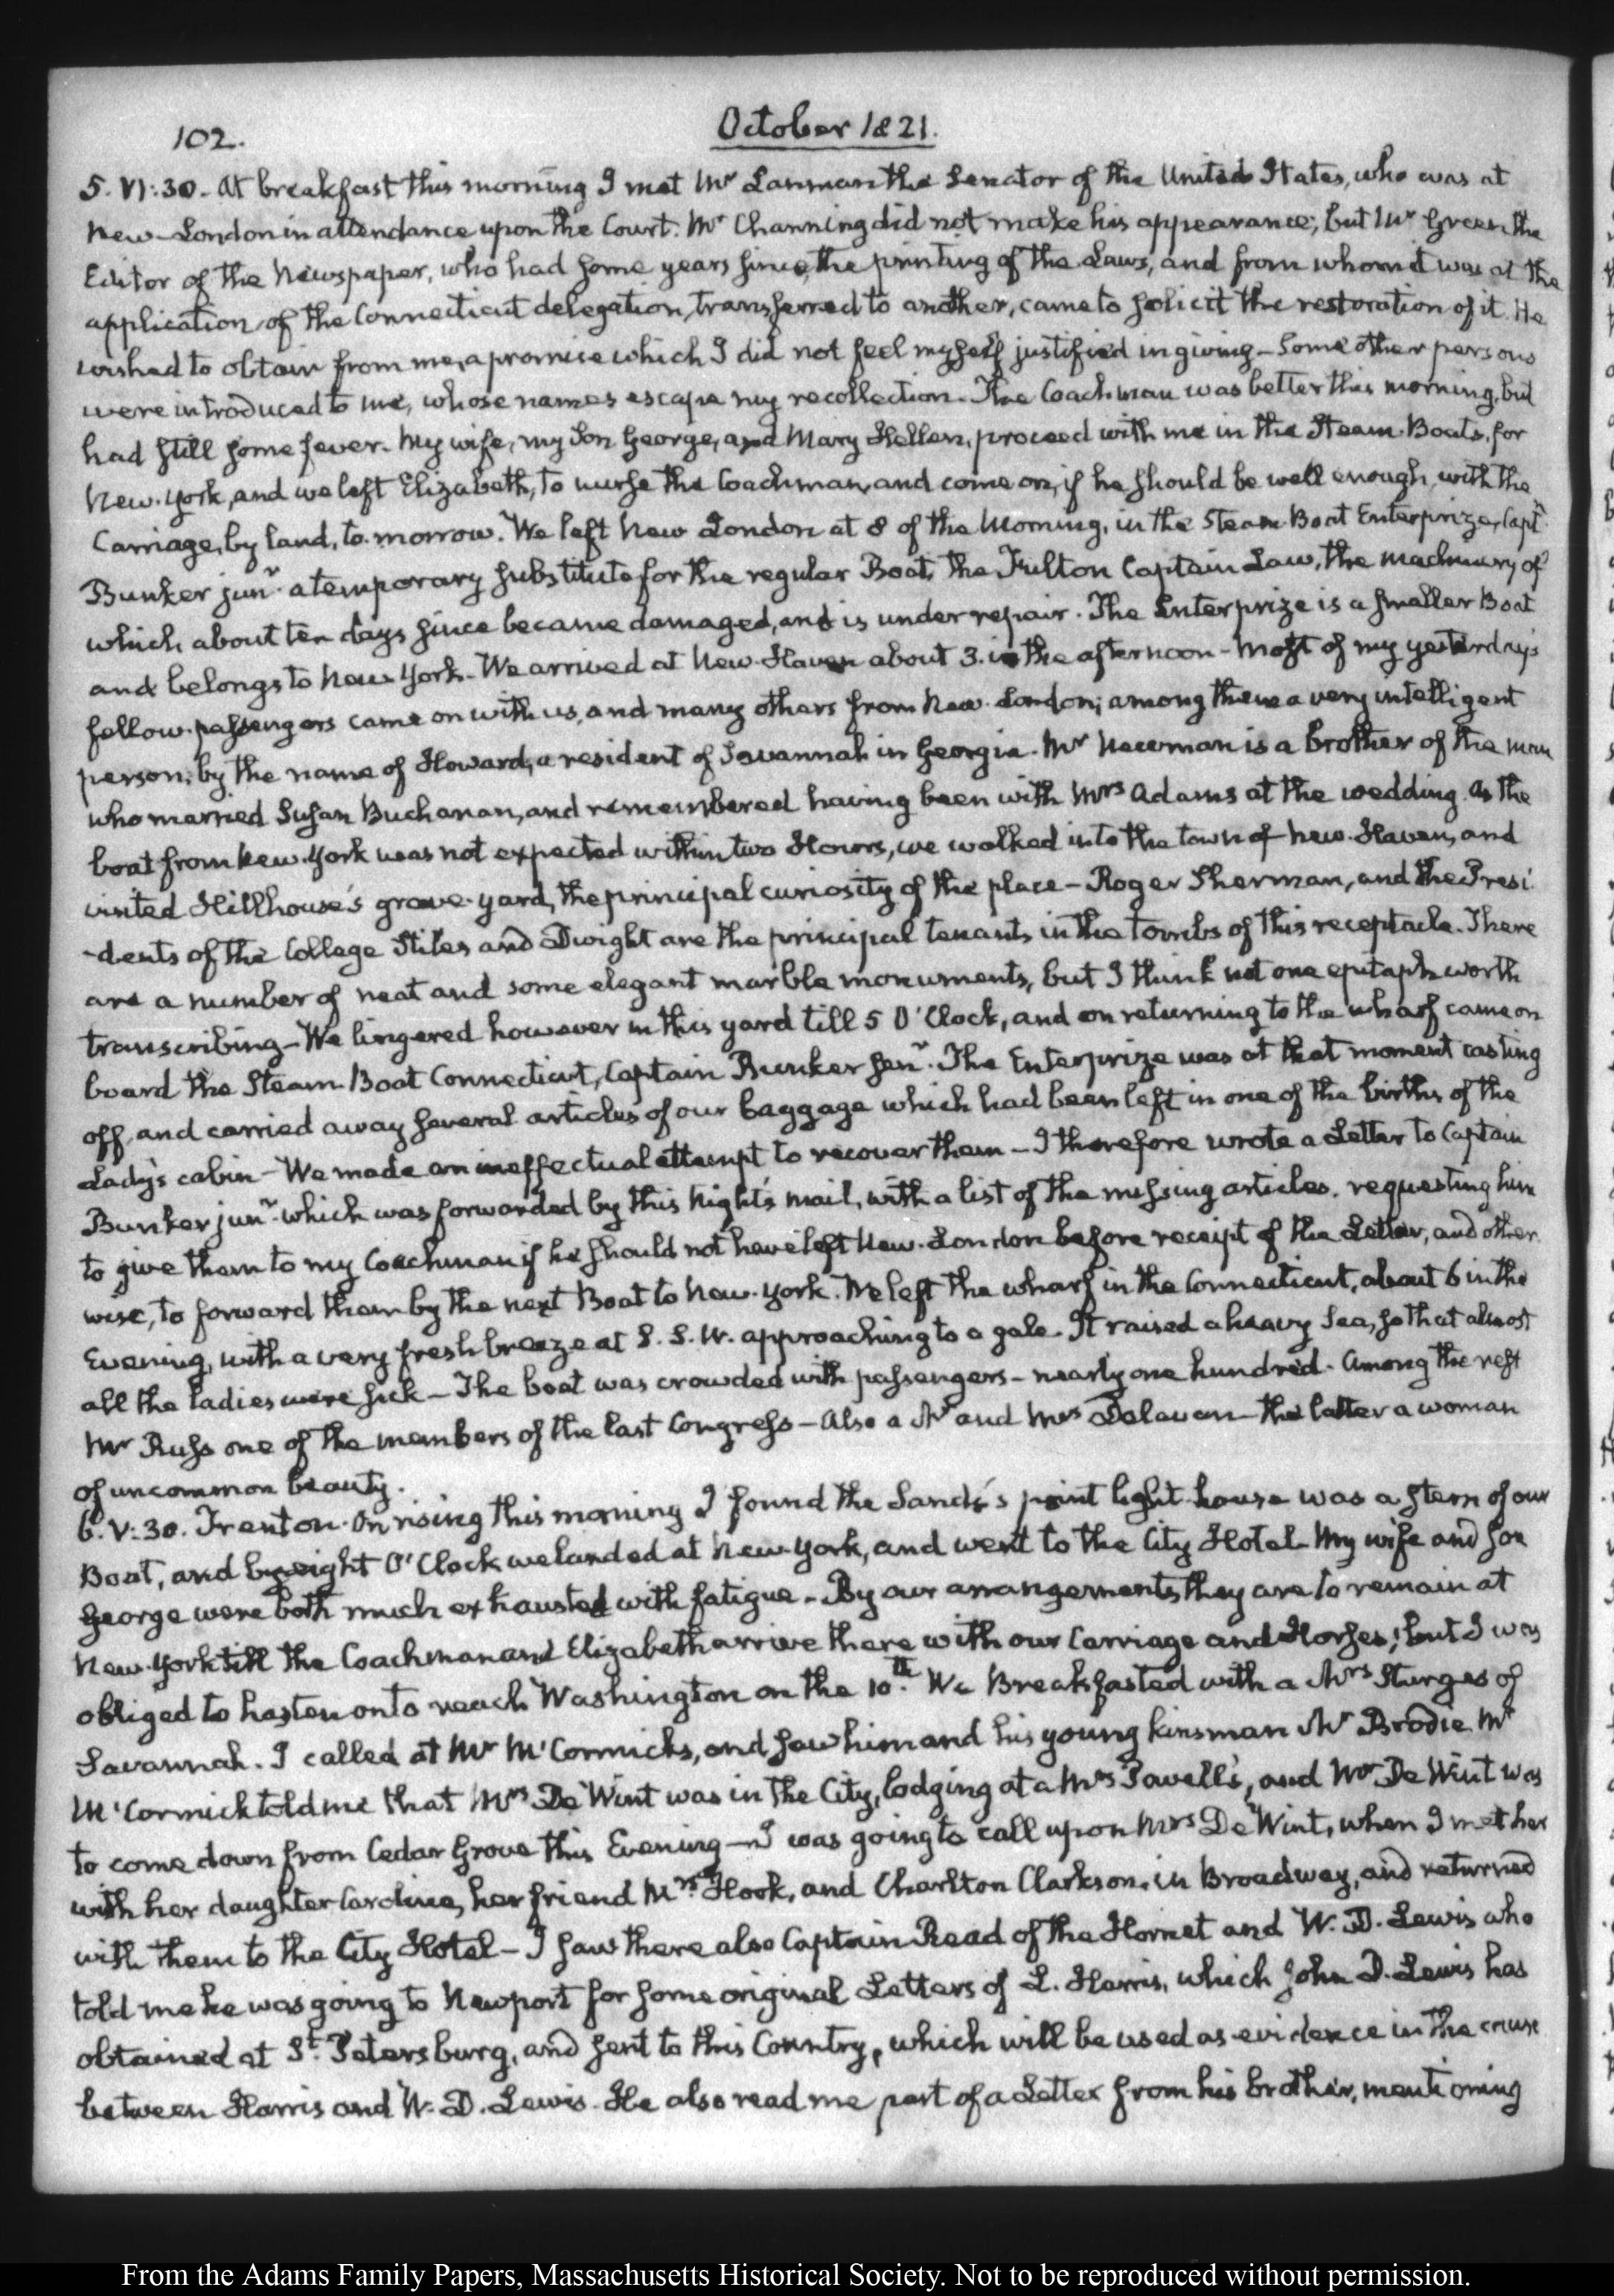 102.
October 1821.
5. VI:30. At breakfast this morning I met Mr Lanman the Senator of the United States, who was at
New-London in attendance upon the Court. Mr Channing did not make his appearance; but Mr Green the
Editor of the Newspaper, who had some years since, the printing of the Laws, and from whom it was at the
application of the Connecticut delegation, transferred to another, came to solicit the restoration of it. He
wished to obtain from me, a promise which I did not feel myself justified in giving - Some other persons
were introduced to me, whose names escape my recollection. The Coachman was better this morning, but
had still some fever. My wife, my Son George, and Mary Hellen, proceed with me in the Steam-Boats, for
New-York, and we left Elizabeth, to nurse the Coachman, and come on, if he should be well enough, with the
Carriage, by land, to-morrow. We left New London at 8 of the Morning, in the Steam-Boat Enterprize, Captn
Bunker junr. a temporary substitute for the regular Boat, the Fulton Captain Law, the machinery of
which about ten days since became damaged, and is under repair. The Enterprize is a smaller Boat
and belongs to New York. We arrived at New-Haven about 3. in the afternoon - Most of my yesterday's
fellow-passengers came on with us, and many others from New-London; among them a very intelligent
person, by the name of Howard, a resident of Savannah in Georgia. Mr Newman is a brother of the man
who married Susan Buchanan, and remembered having been with Mrs Adams at the wedding. As the
boat from New-York was not expected within two Hours, we walked into the town of New-Haven, and
visited Hillhouse's grave-yard, the principal curiosity of the place - Roger Sherman, and the Presi
-dents of the College Stiles and Dwight are the principal tenants in the tombs of this receptacle. There
are a number of neat and some elegant marble monuments, but I think not one epitaph worth
transcribing - We lingered however in this yard till 5 O'Clock, and on returning to the wharf came on
board the Steam-Boat Connecticut, Captain Bunker senr. The Enterprize was at that moment casting
off, and carried away several articles of our baggage which had been left in one of the births of the
Lady's cabin - We made an ineffectual attempt to recover them - I therefore wrote a Letter to Captain
Bunker junr. which was forwarded by this Night's mail, with a list of the missing articles, requesting him
to give them to my Coachman if he should not have left New-London before receipt of the Letter, and other
wise, to forward them by the next Boat to New-York. We left the wharf in the Connecticut, about 6 in the
Evening, with a very fresh breeze at S. S. W. approaching to a gale. It raised a heavy Sea, so that almost
all the ladies were sick - The boat was crowded with passengers - nearly one hundred. Among the rest
Mr Russ one of the members of the last Congress - Also a Mr and Mrs Delavan - the latter a woman
of uncommon beauty.
6. V:30. Trenton. On rising this morning I found the Sands's point light-house was a stern of our
Boat, and by eight O'Clock we landed at New-York, and went to the City Hotel. My wife and son
George were both much exhausted with fatigue - By our arrangements, they are to remain at
New-York till the Coachman and Elizabeth arrive there with our Carriage and Horses; but I was
obliged to hasten on to reach Washington on the 10th. We Breakfasted with a Mrs Sturges of
Savannah. I called at Mr McCormick's, and saw him and his young kinsman Mr Brodie. Mr
McCormick told me that Mrs De Wint was in the City, lodging at a Mrs Powell's, and Mr De Wint was
to come down from Cedar Grove this Evening - I was going to call upon Mrs De Wint, when I met her
with her daughter Caroline, her friend Mrs Hook, and Charlton Clarkson in Broadway, and returned
with them to the City Hotel - I saw there also Captain Read of the Hornet and W. D. Lewis who
told me he was going to Newport for some original Letters of L. Harris, which John D. Lewis has
obtained at St. Petersburg, and sent to this Country, which will be used as evidence in the cause
between Harris and W. D. Lewis. He also read me part of a Letter from his brother, mentioning
From the Adams Family Papers, Massachusetts Historical Society. Not to be reproduced without permission.